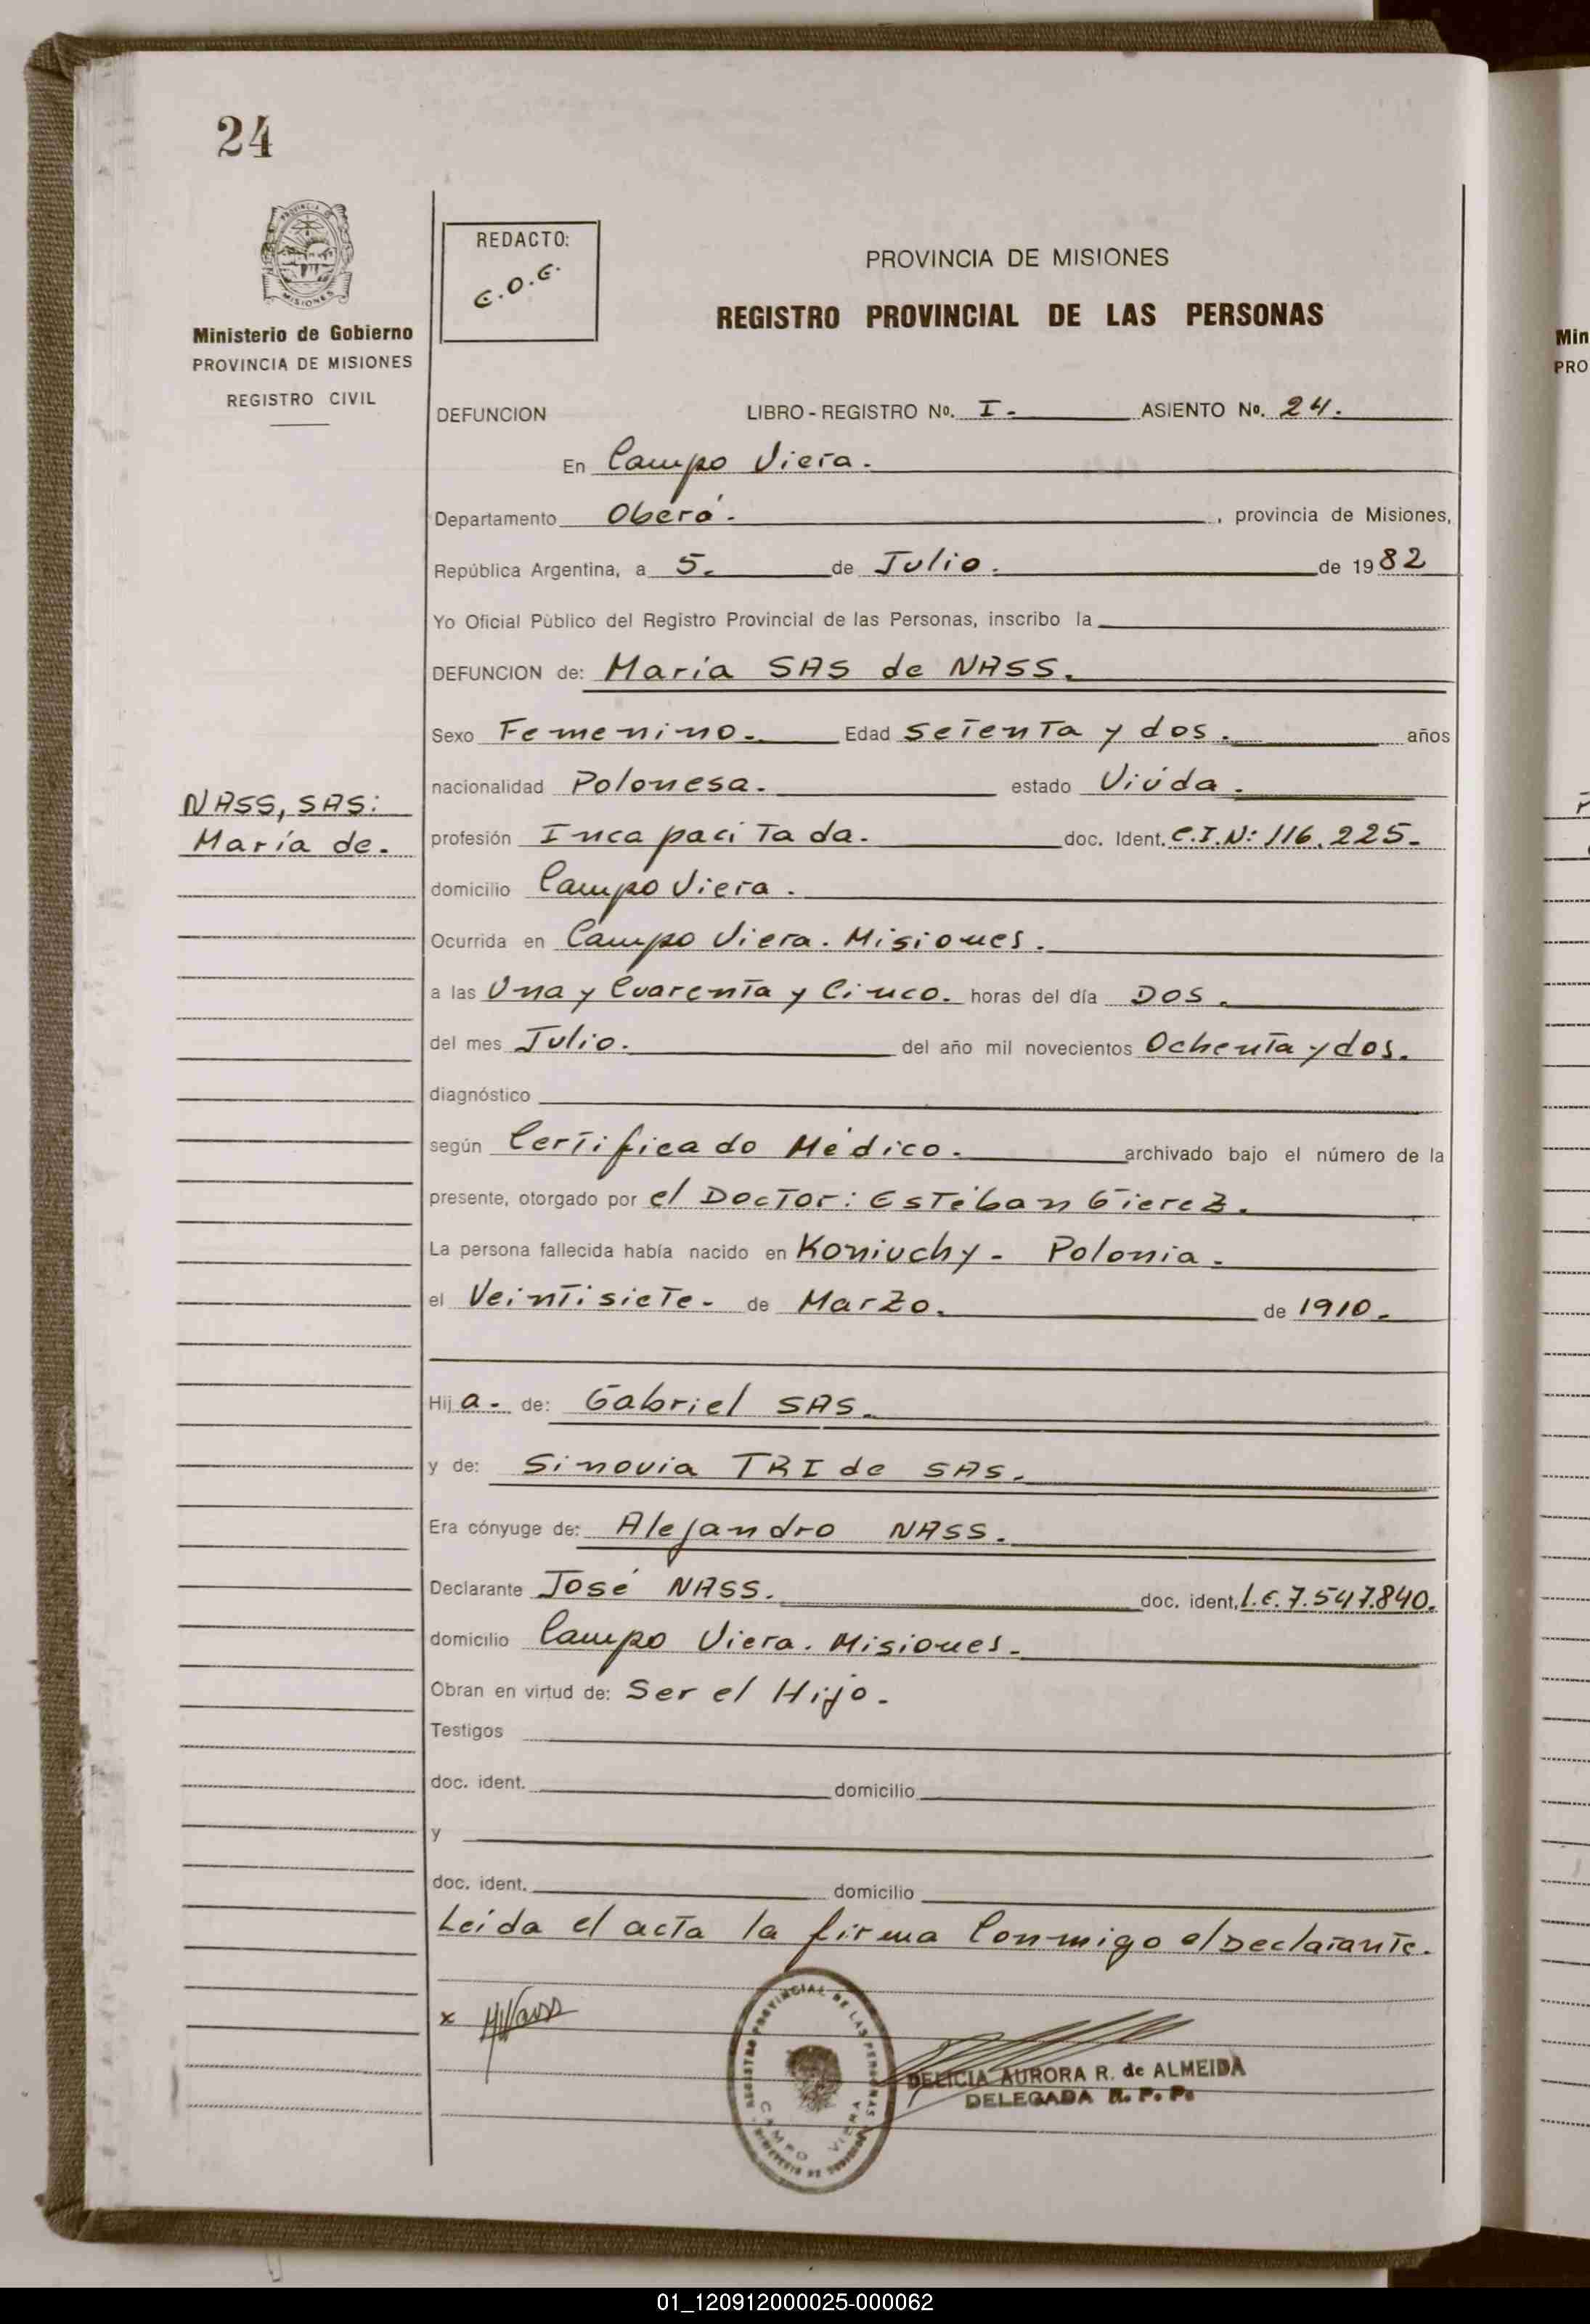 24
PROVINCIA DE
MISIONES
Ministerio de Gobierno
PROVINCIA DE MISIONES
REGISTRO CIVIL
REDACTO:
E.O.G.
PROVINCIA DE MISIONES
REGISTRO PROVINCIAL DE LAS PERSONAS
DEFUNCION LIBRO - REGISTRO No. I - ASIENTO No. 24.
En Campo Viera.
Departamento Oberá. , provincia de Misiones,
República Argentina, a 5. de Julio. de 1982
Yo Oficial Público del Registro Provincial de las Personas, inscribo la
DEFUNCION de: María SAS de NASS.
Sexo Femenino. Edad Setenta y dos. años
nacionalidad Polonesa. estado Viúda.
NASS, SAS:
María de.
profesión Incapacitada. doc. Ident. C.I.N: 116.225-
domicilio Campo Viera.
Ocurrida en Campo Viera. Misiones.
a las Una y Cuarenta y Cinco. horas del día Dos.
del mes Julio. del año mil novecientos Ochenta y dos.
diagnóstico
según Certificado Médico. archivado bajo el número de la
presente, otorgado por el Doctor: Estéban Gierez.
La persona fallecida había nacido en Koniuchy - Polonia.
el Veintisiete. de Marzo. de 1910.
Hija. de: Gabriel SAS.
y de: Sinovia TRI de SAS.
Era cónyuge de: Alejandro NASS.
Declarante José NASS. doc. ident. L.E. 7.547.840.
domicilio Campo Viera. Misiones.
Obran en virtud de: Ser el Hijo.
Testigos
doc. ident. domicilio
y
doc. ident. domicilio
Leída el acta la firma Conmigo el Declarante.
x
REGISTRO PROVINCIAL DE LAS PERSONAS
CAMPO VIERA
DELICIA AURORA R. de ALMEIDA
DELEGADA R. P. P.
Min
PRO
01_120912000025-000062